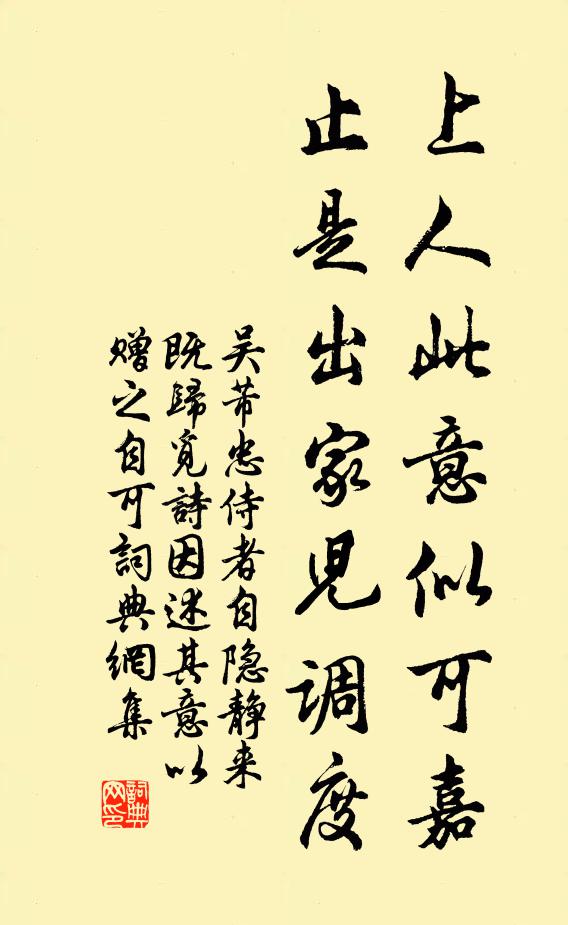 上人此意似可嘉
止是出家児调度
吴芾忠侍者自隐静来
既歸覓詩因述其意以
赠之自可詞典網集
詞典
网印